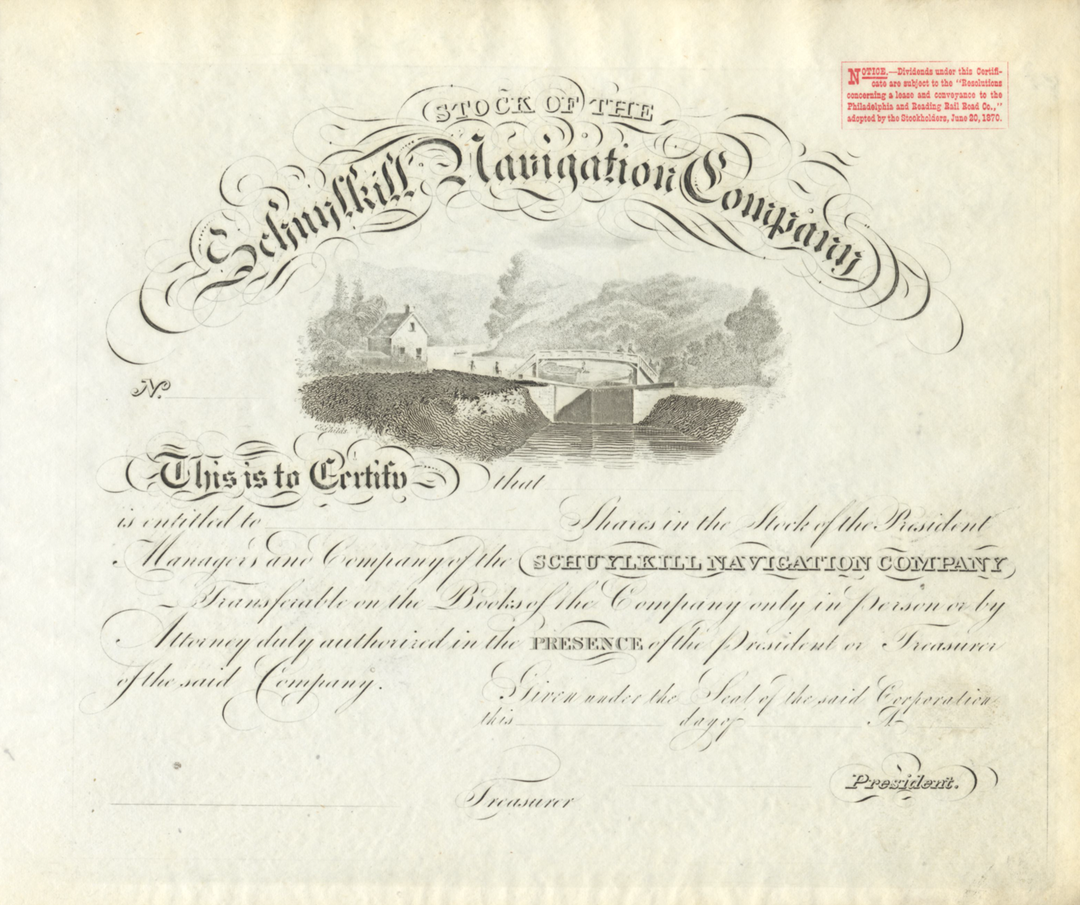 NOTICE.—Dividends under this Certifi-
cate are subject to the "Resolutions
concerning a lease and conveyance to the
Philadelphia and Reading Rail Road Co.,"
adopted by the Stockholders, June 20, 1870.
STOCK OF THE
Schuylkill Navigation Company
No.
This is to Certify that
is entitled to Shares in the Stock of the President
Managers and Company of the SCHUYLKILL NAVIGATION COMPANY
Transferable on the Books of the Company only in person or by
Attorney duly authorized in the PRESENCE of the President or Treasurer
of the said Company.
Given under the Seal of the said Corporation
this day of A
President.
Treasurer